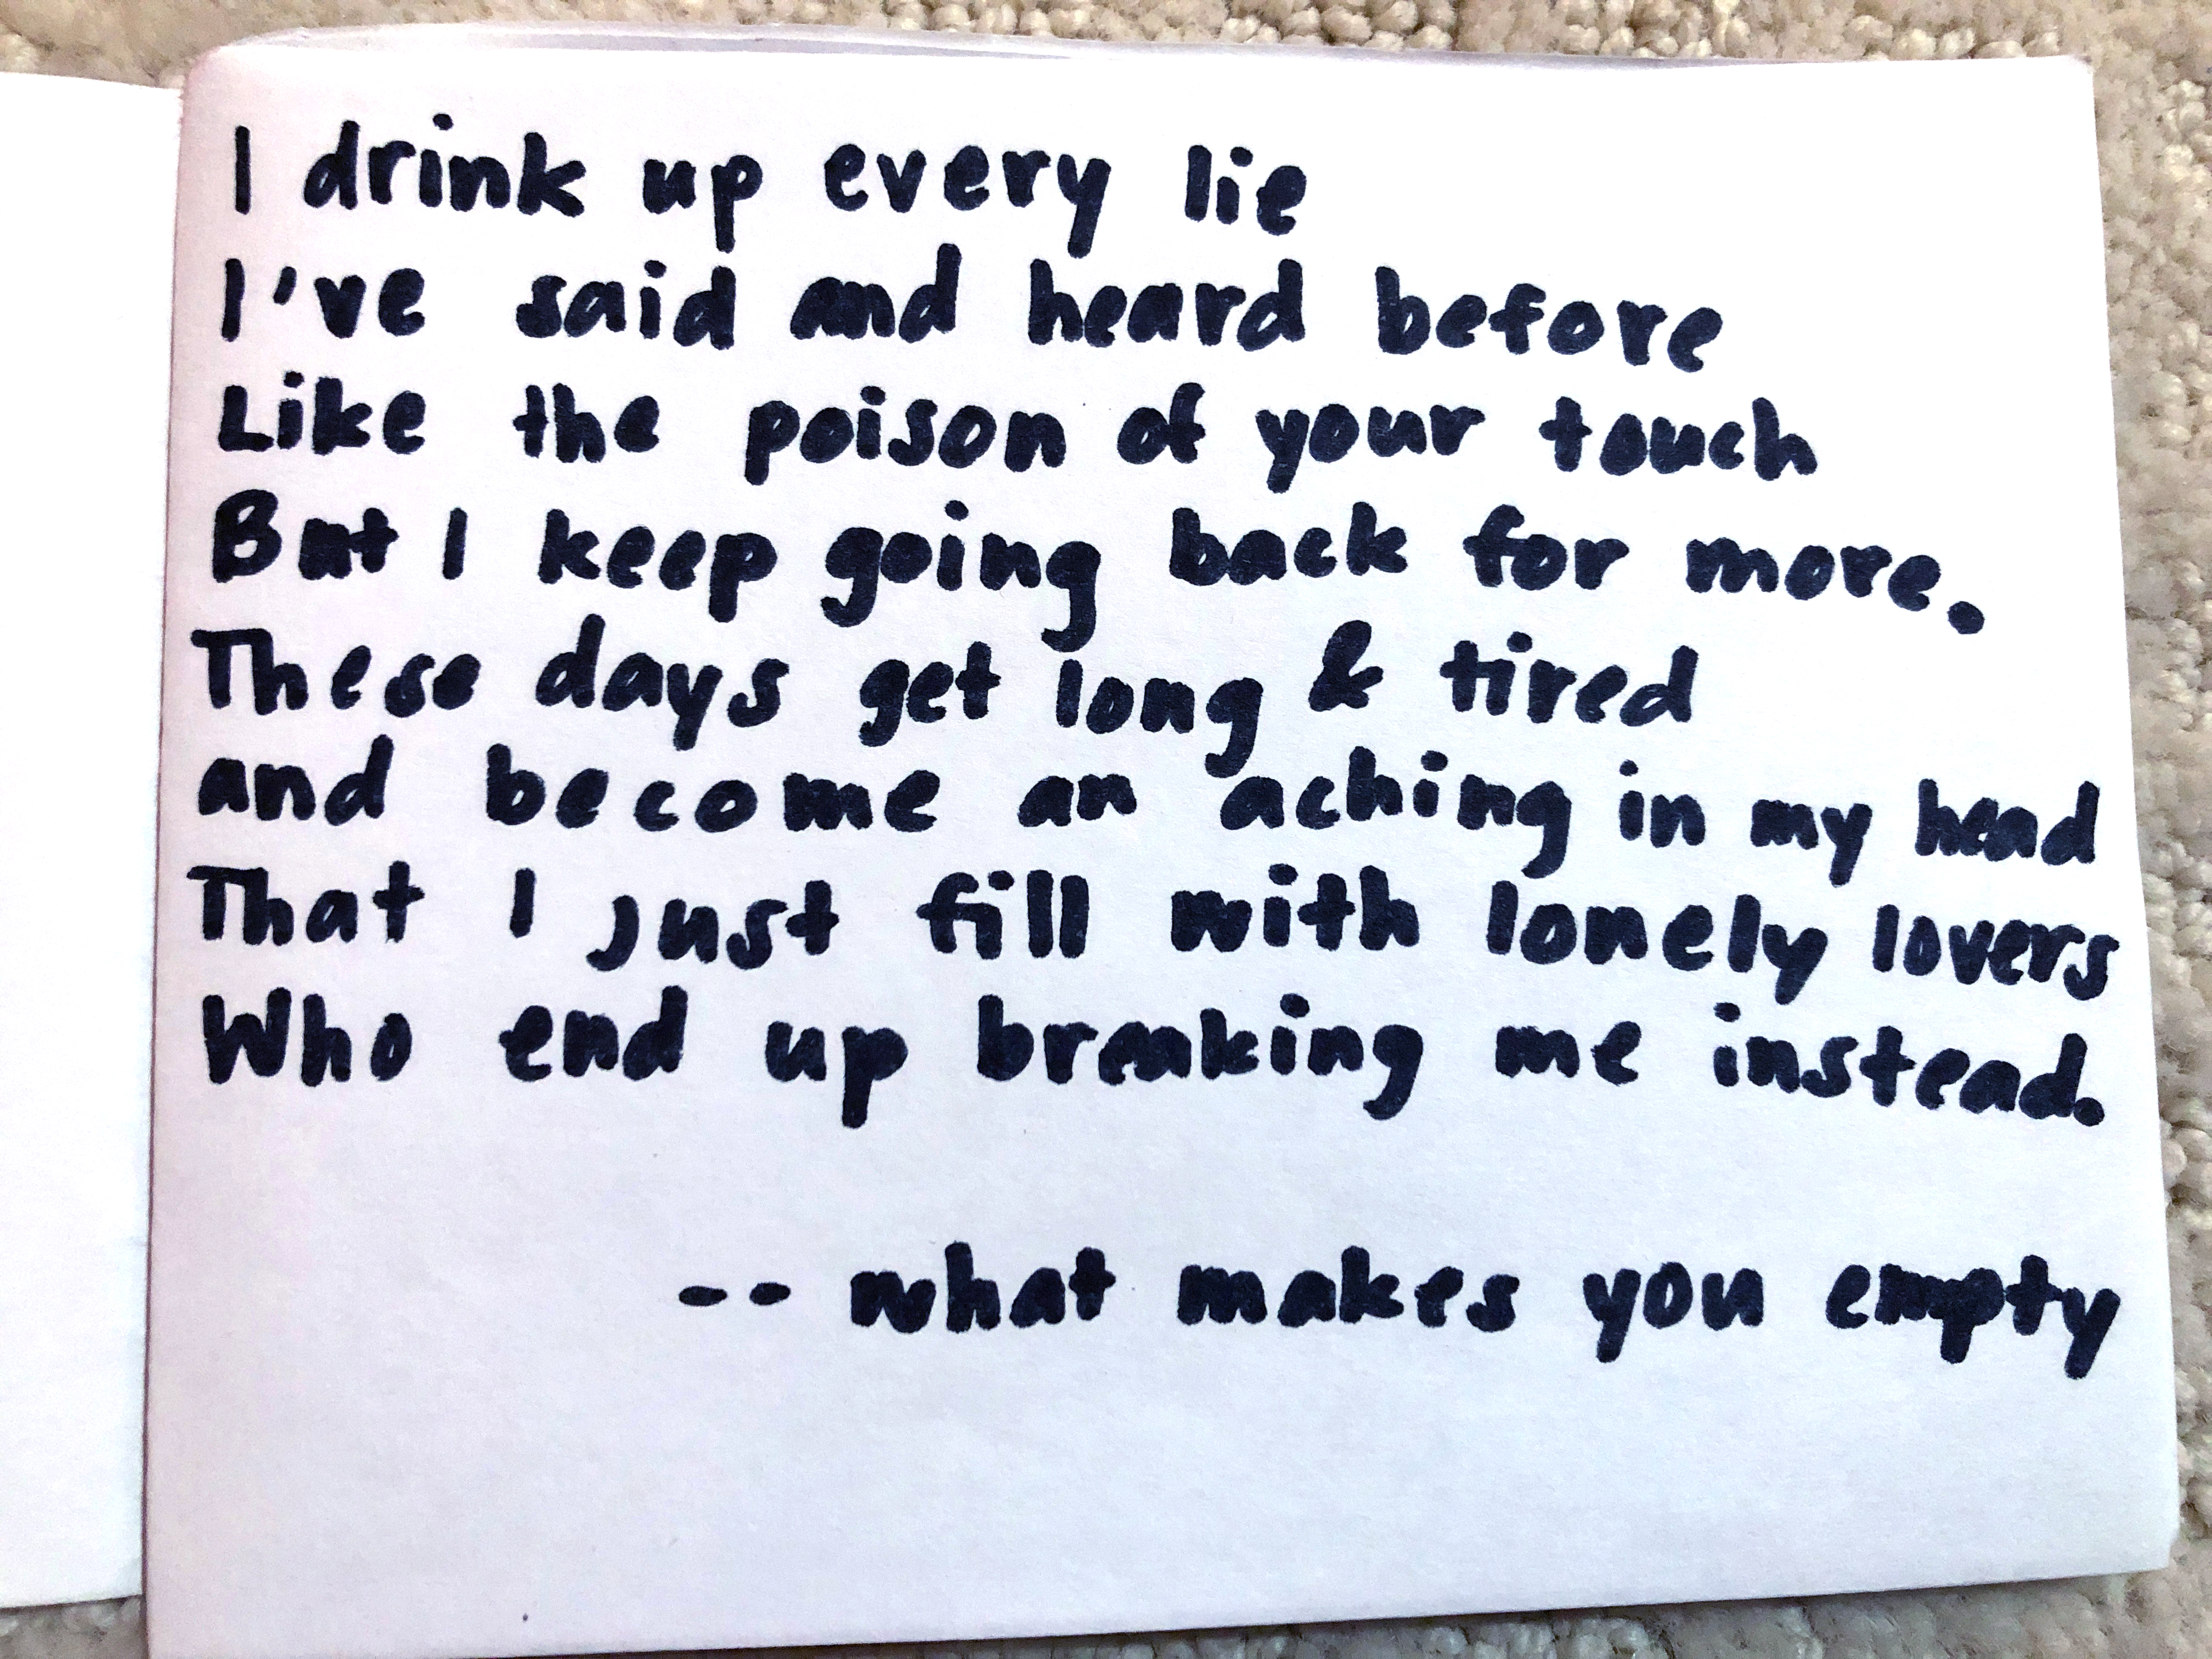 I drink up every lie
I've said and heard before
Like the poison of your touch
But I keep going back for more.
These days get long & tired
and become an aching in my head
That I just fill with lonely lovers
Who end up breaking me instead.
-- what makes you empty